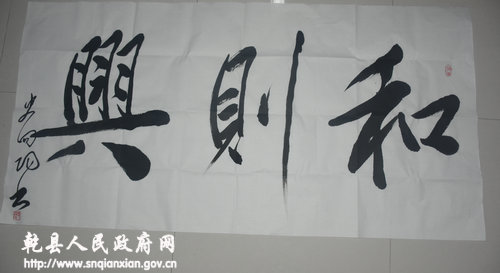 和則興
乾县人民政府网
http://www.snqianxian.gov.cn